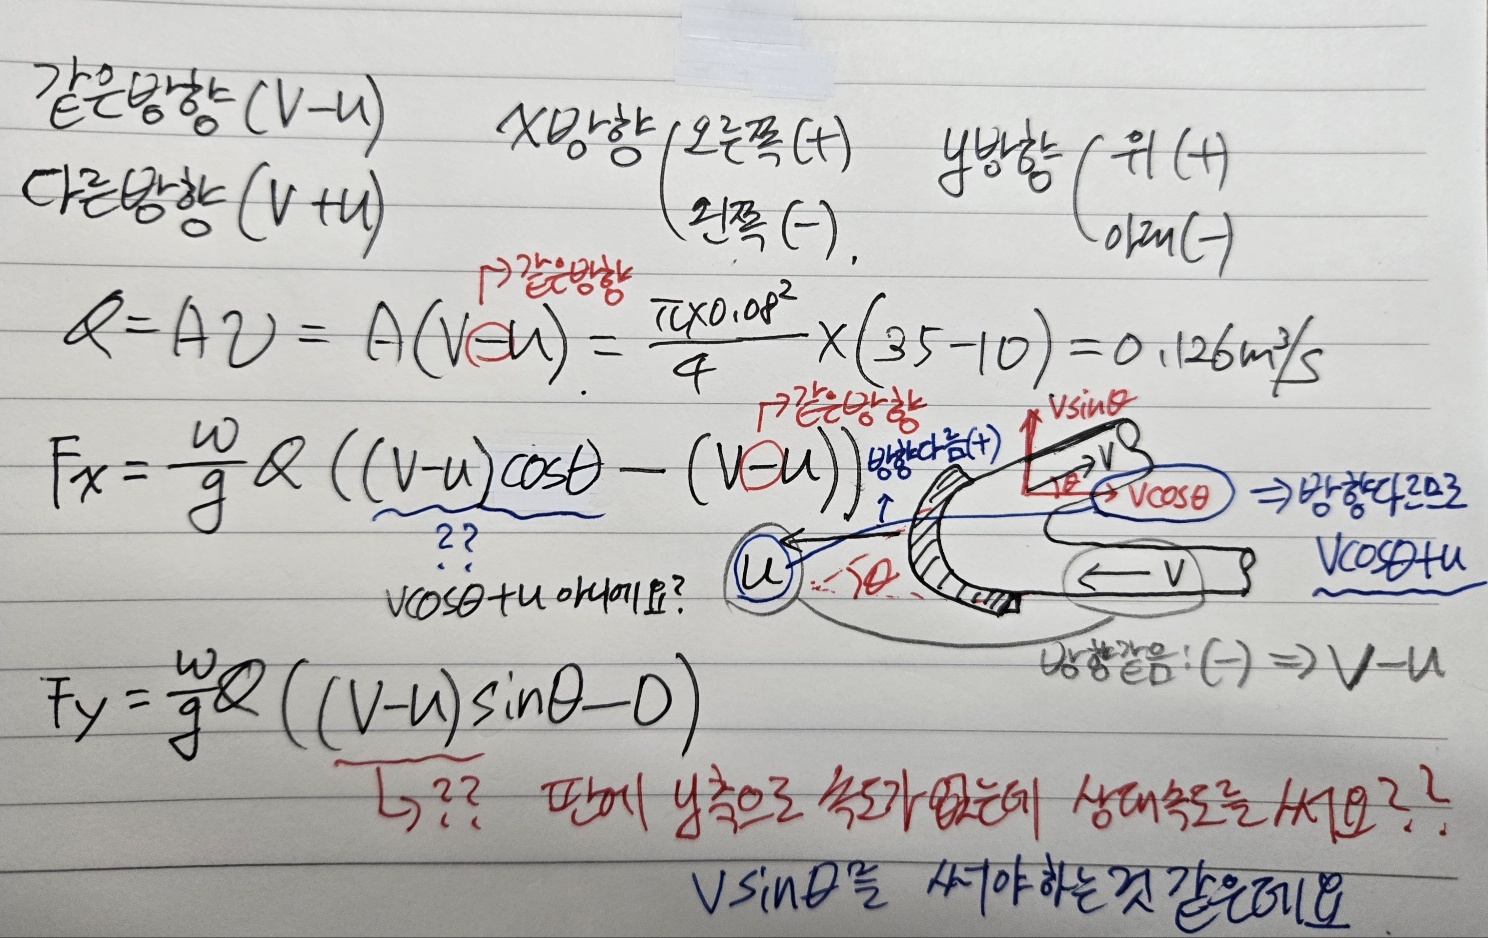 같은방향 (V-u)
다른방향 (V+u)
x방향 ( 오른쪽 (+)
왼쪽 (-).
y방향 ( 위 (+)
아래 (-)
↱같은방향
Q = Av = A(V-u). = π×0.08²/4 × (35-10) = 0.126m³/s
↱같은방향
Fx = w/g Q ((V-u)cosθ - (V-u))
??
Vcosθ+u 아니에요?
방향다름(+)
Vsinθ
V
θ
Vcosθ
⇒ 방향다르므로
Vcosθ+u
u
θ
← V
방향같음: (-) ⇒ V-u
Fy = w/g Q ((V-u)sinθ-0)
↳?? 판에 y축으로 속도가 없는데 상대속도를 써요??
Vsinθ를 써야하는것 같은데요